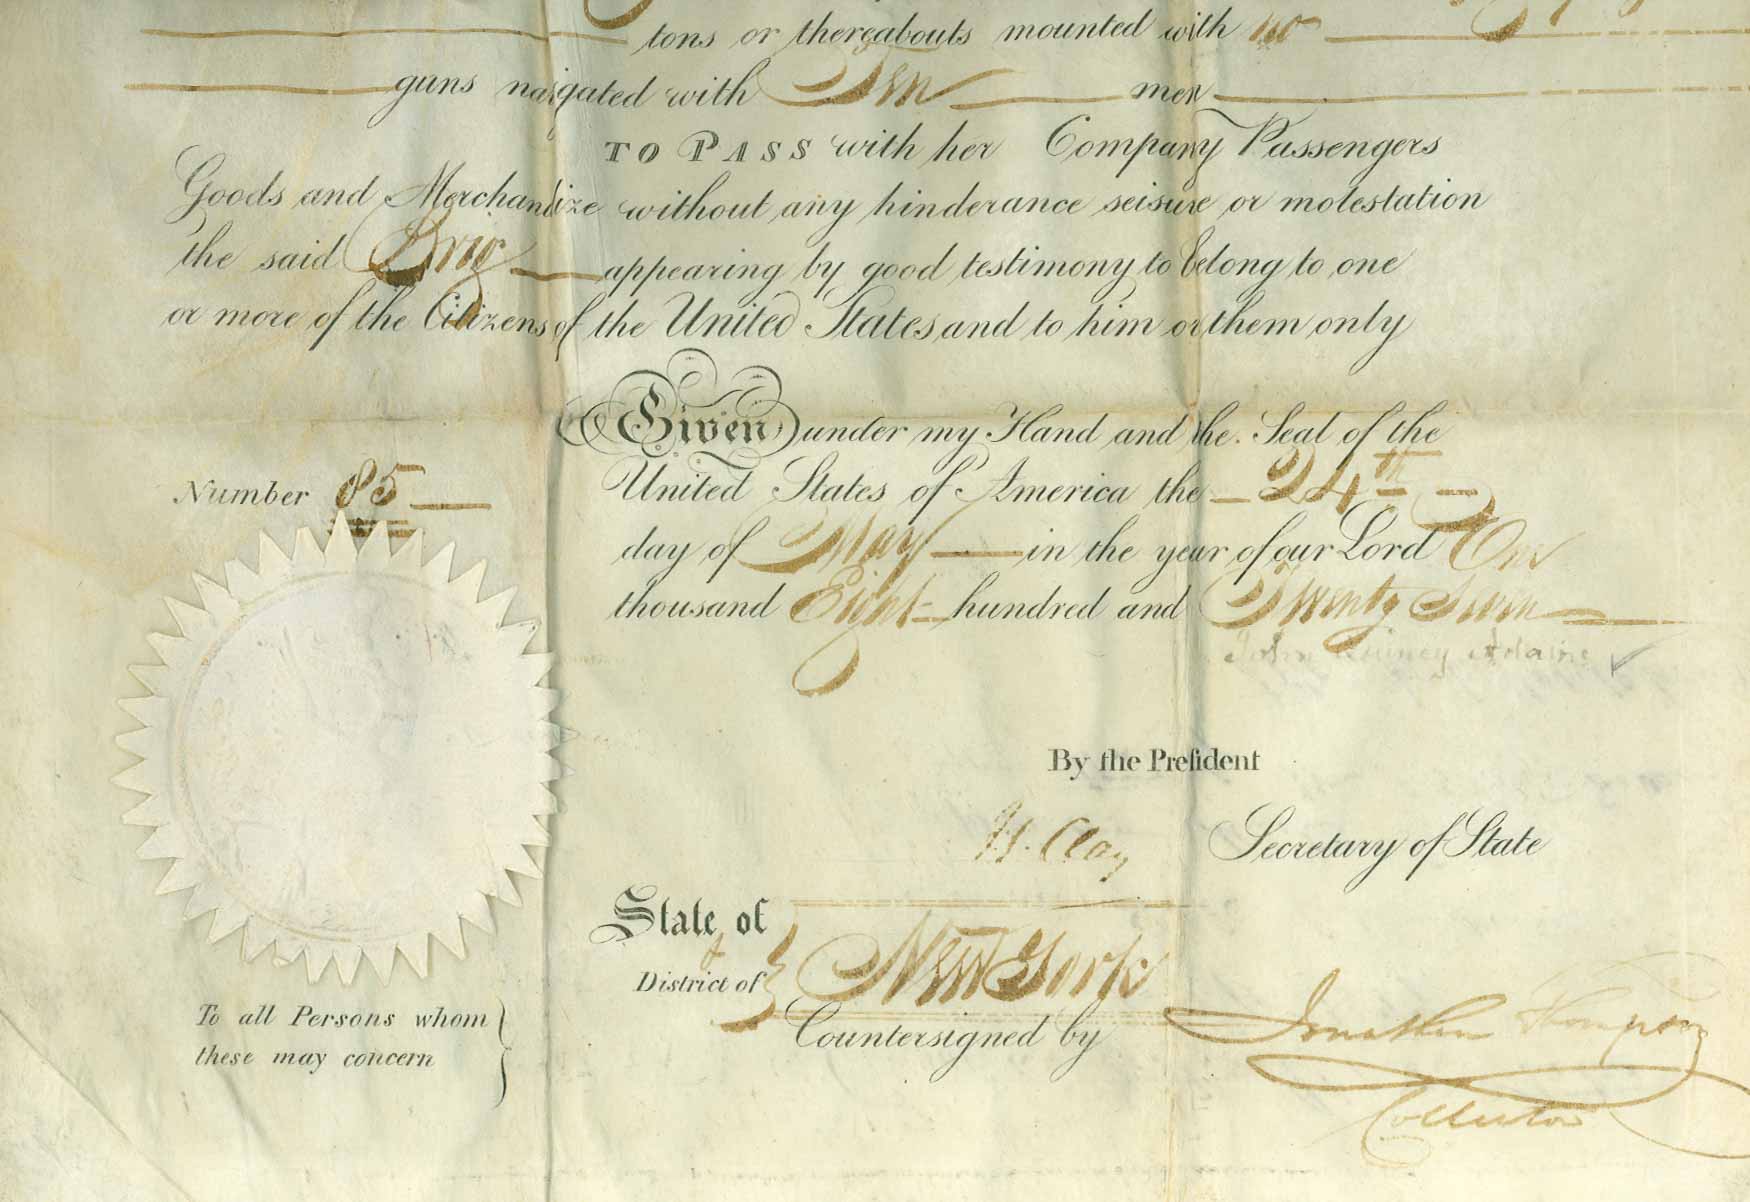 tons or thereabouts mounted with no
guns navigated with Ten men
TO PASS with her Company Passengers
Goods and Merchandize without any hinderance seisure or molestation
the said Brig appearing by good testimony to belong to one
or more of the Citizens of the United States and to him or them only
Given under my Hand and the Seal of the
United States of America the 24th
day of May in the year of our Lord One
thousand Eight hundred and Twenty Seven
John Quincy Adams
Number 85
By the Preſident
H. Clay Secretary of State
State of
& District of } New York
Countersigned by Jonathan Thompson
Collector
To all Persons whom
these may concern